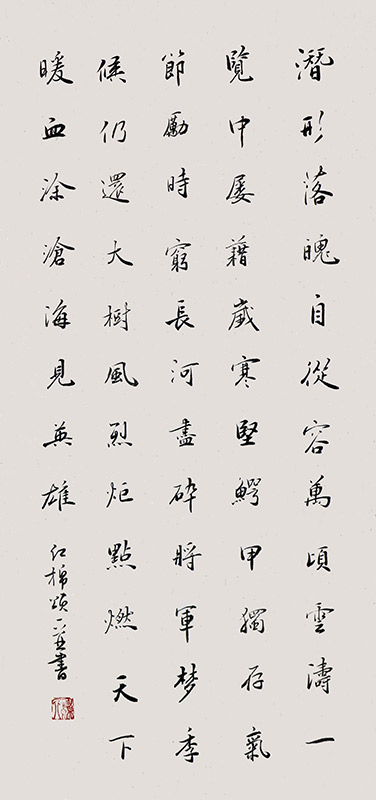 潛形落魄自從容萬頃雲濤一
覽中屢藉歲寒堅鰐甲獨存氣
節勵時窮長河盡碎將軍梦季
候仍還大樹風烈炬點燃天下
暖血涂滄海見英雄
紅棉頌 書